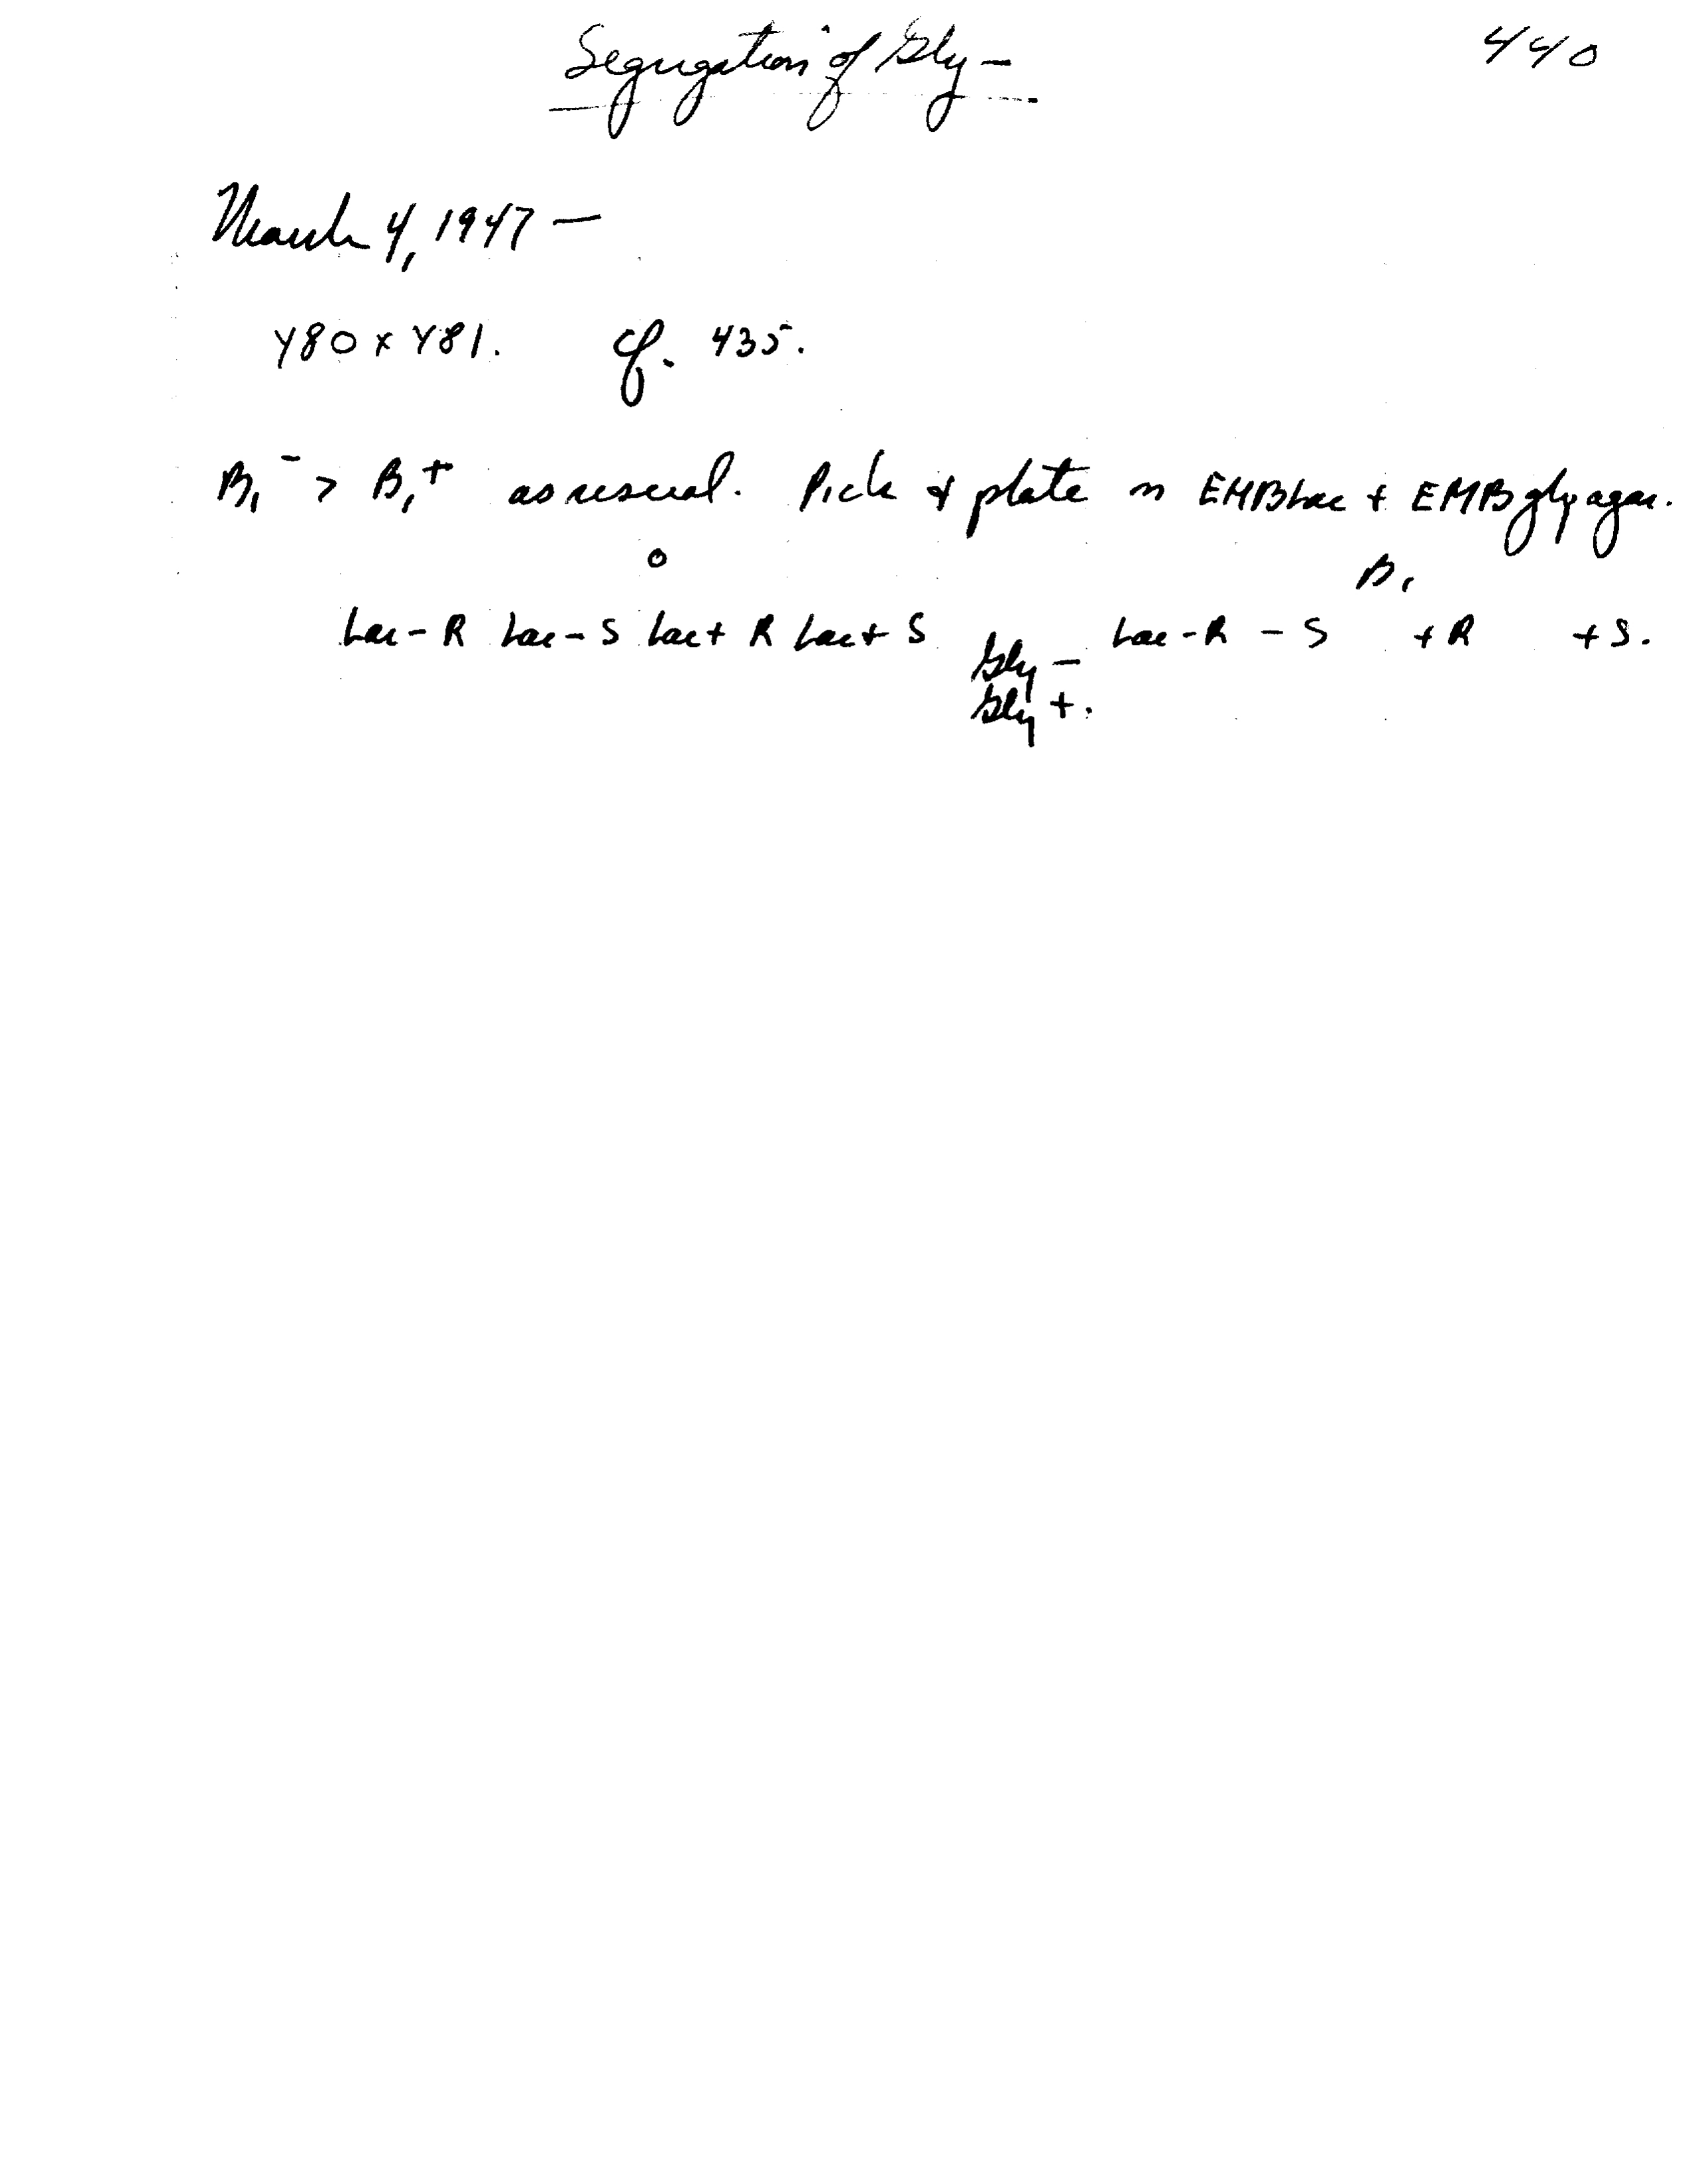 Segregation of Gly -
440
March 4, 1947 —
Y80 x Y81. cf. 435.
B₁⁻ > B₁⁺ as usual. Pick & plate on EMBLac + EMB gly agar.
o B₁
Lac-R Lac-S Lac+ R Lac+ S Lac-R -S +R +S.
Gly -
Gly +.